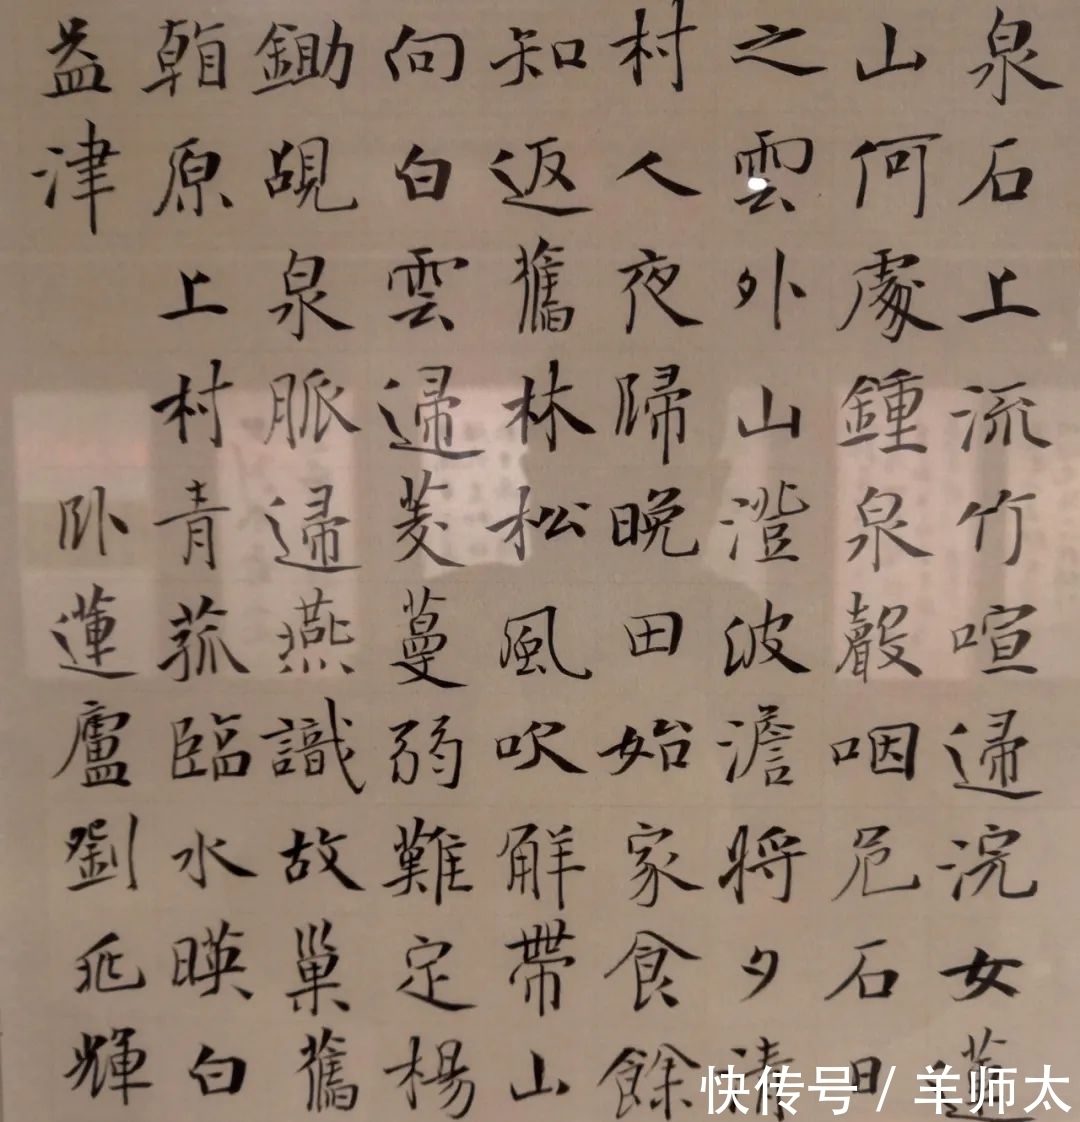 泉石上流竹喧歸浣女蓮
山何處鍾泉聲咽危石日
之雲外山澄波澹將夕清
村人夜歸晚田始家食餘
知返舊林松風吹解帶山
向白雲歸菱蔓弱難定楊
鋤覘泉脈歸燕識故巢舊
朝原上村青菰臨水暎白
益津 卧蓮廬劉兆輝
快传号 / 羊师太